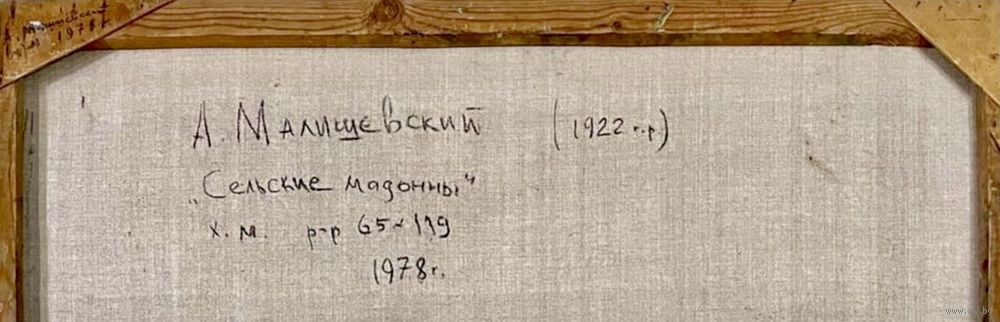 А. Малишевский
х.м. 1978 г.
А. Малишевский (1922 г.р)
„Сельские мадонны"
х.м. р-р 65×119
1978г.